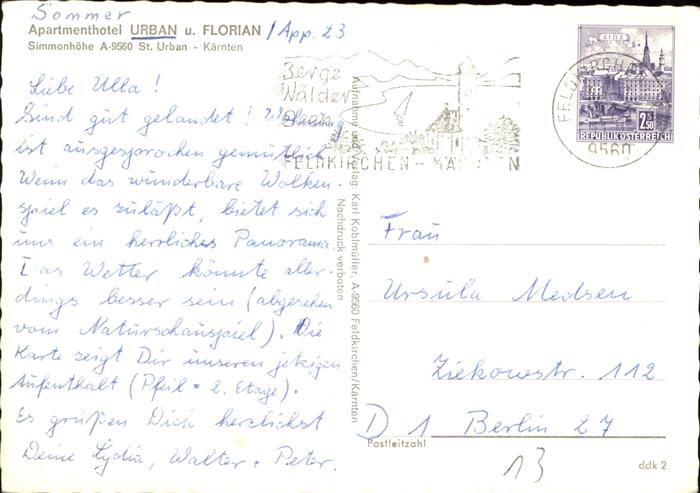 Sommer
Apartmenthotel URBAN u. FLORIAN / App. 23
Simmonhöhe A-9560 St. Urban - Kärnten
Liebe Ulla!
Sind gut gelandet! Wohnung
ist ausgesprochen gemütlich
Wenn das wunderbare Wolken-
spiel es zuläßt, bietet sich
uns ein herrliches Panorama.
Das Wetter könnte aller-
dings besser sein (abgesehen
vom Naturschauspiel). Die
Karte zeigt Dir unseren jetzigen
Aufenthalt (Pfeil = 2. Etage).
Es grüßen Dich herzlichst
Deine Lydia, Walter + Peter.
Berge
Wälder
FELDKIRCHEN - KÄRNTEN
FELDKIRCHEN
9560
LINZ
2.50
REPUBLIK ÖSTERREICH
Aufnahme und Verlag: Karl Koblmüller, A-9560 Feldkirchen/Kärnten
Nachdruck verboten
Frau
Ursula Medsen
Ziekowstr. 112
D 1 Berlin 27
Postleitzahl
13
ddk 2